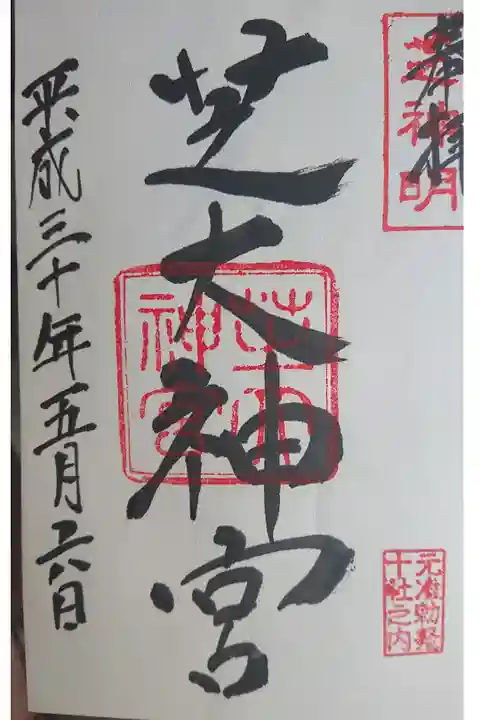 奉拝
芝神明
元准勅祭
十社之内
芝大神宮
芝大
神宮
平成三十年五月六日